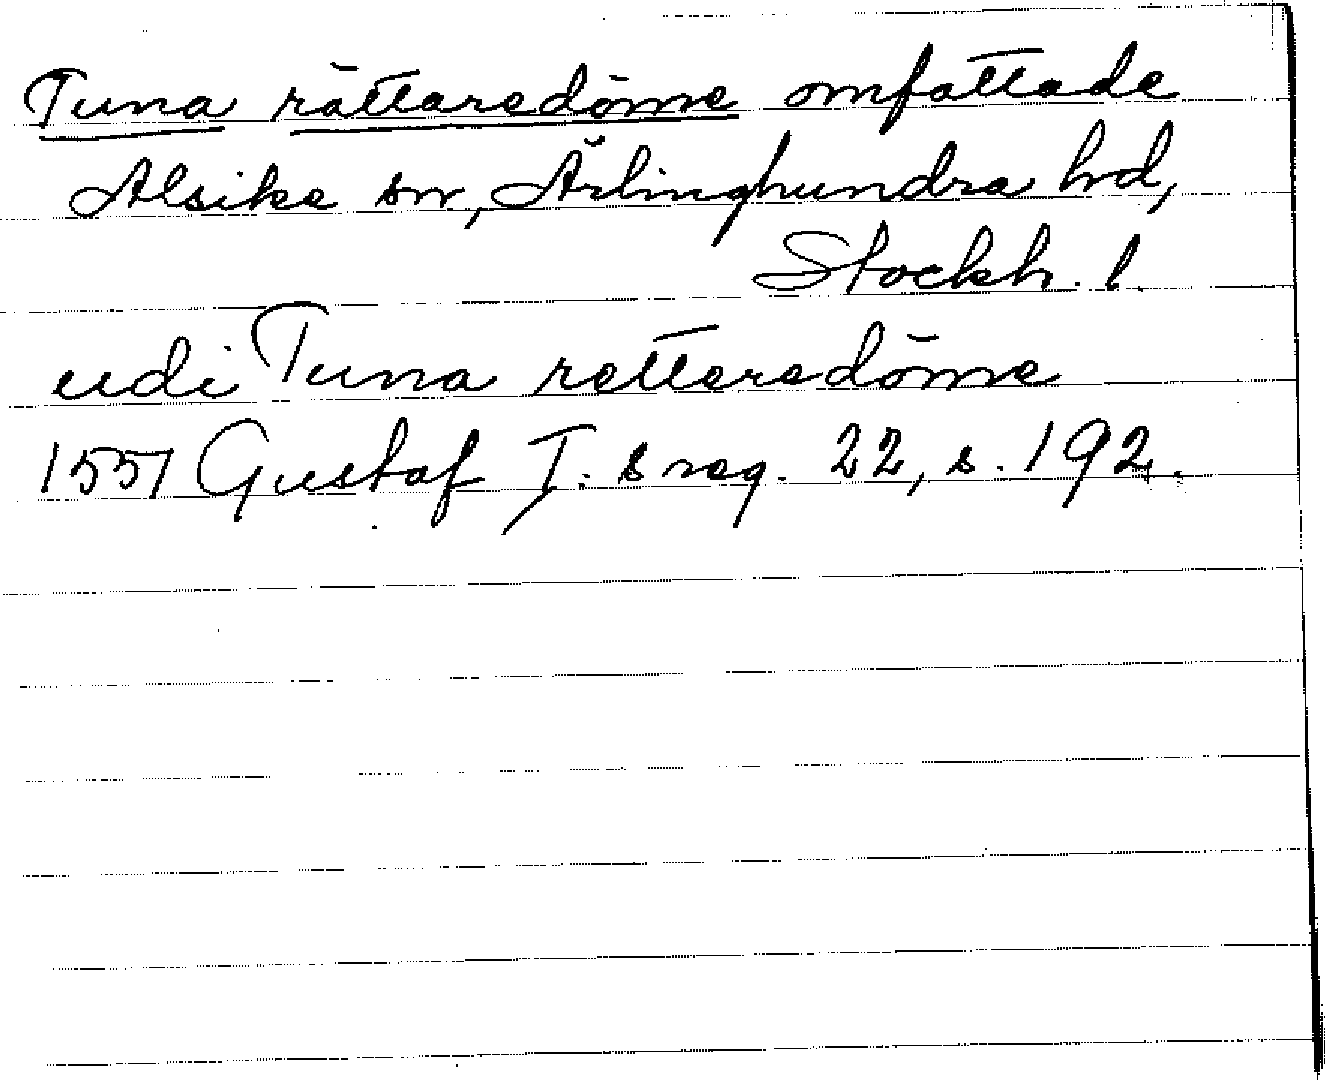 Tuna rättaredöme omfattade
Alsike sn, Ärlinghundra hd,
Stockh. l.
udi Tuna retteredöme
1551 Gustaf I:s reg. 22, s. 192.